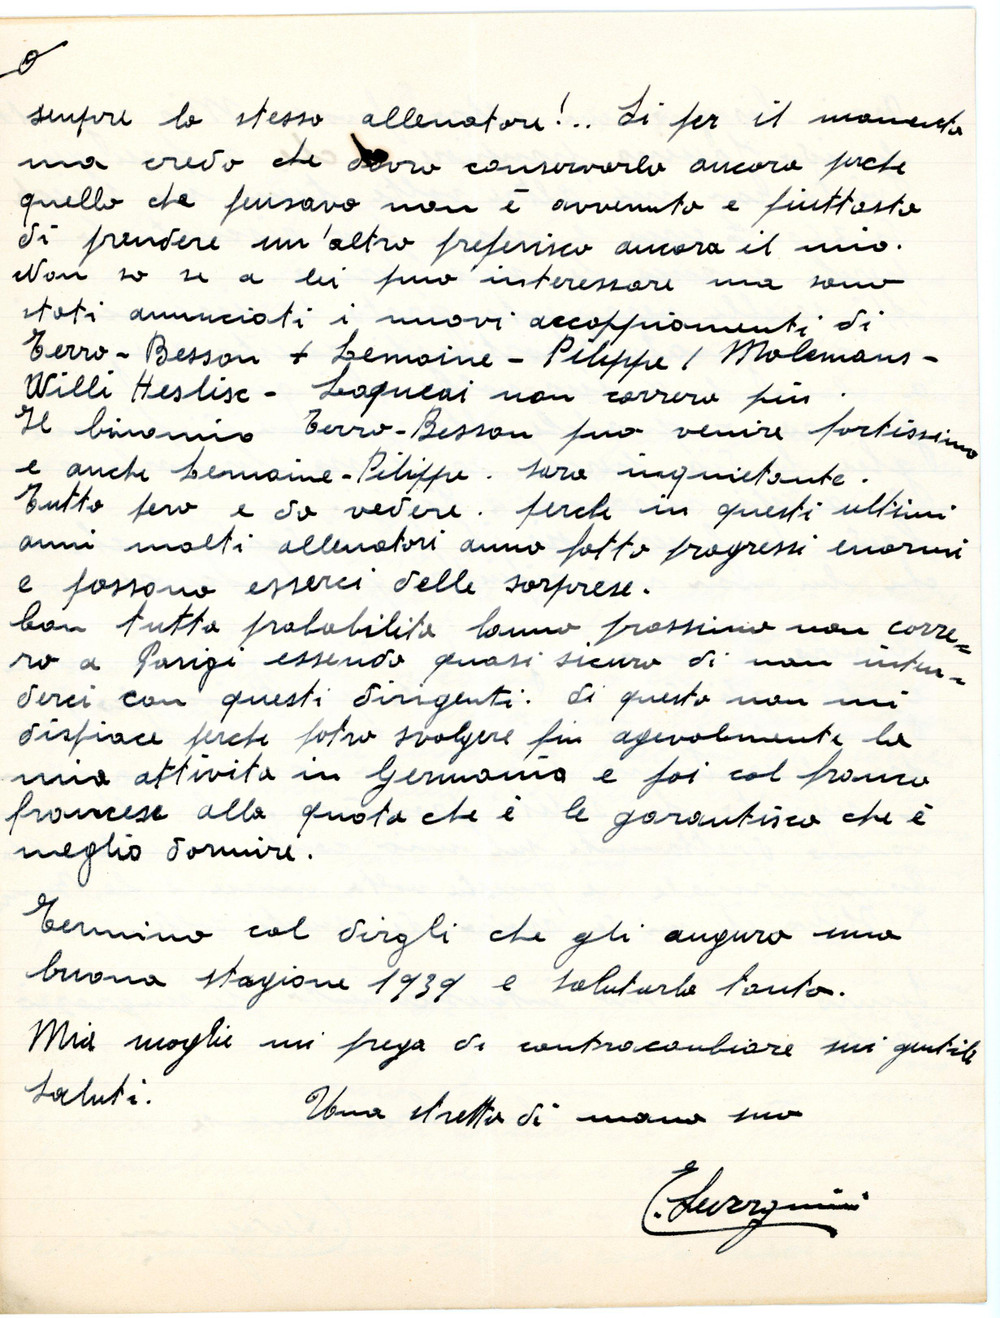 sempre lo stesso allenatore!.. Si per il momento
ma credo che dovro conservarlo ancora perche
quello che pensavo non è avvenuto e piuttosto
di prendere un'altro preferisco ancora il mio.
Non so se a lei puo interessare ma sono
stati annunciati i nuovi accoppiamenti di
Terro-Besson + Lemoine-Pilippe / Molemans-
Willi Heslisc- Loqueai non correra più.
Il binomio Terro-Besson puo venire fortissimo
e anche Lemoine-Pilippe. sara inquietante.
Tutto pero e da vedere. perche in questi ultimi
anni molti allenatori anno fatto progressi enormi
e possono esserci delle sorprese.
Con tutta probabilita lanno prossimo non corre=
ro a Parigi essendo quasi sicuro di non inten=
derci con questi dirigenti. di questo non mi
dispiace perche potro svolgere piu agevolmente la
mia attivita in Germania e poi col franco
francese alla quota che è le garantisco che è
meglio dormire.
Termino col dirgli che gli auguro una
buona stagione 1939 e salutarlo tanto.
Mia moglie mi prega di contracambiare sui gentili
saluti.
Una stretta di mano suo
E. Severgnini